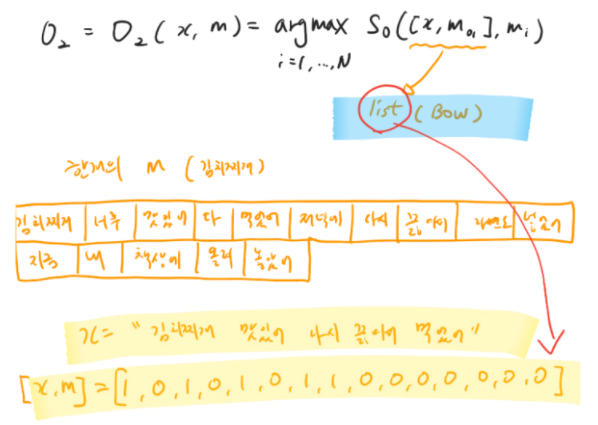 O₂ = O₂(x, m) = argmax S₀([x, m₀₁], mᵢ)
i=1, ..., N
list (BoW)
한개의 M (김치찌개)
김치찌개 너무 맛있어 다 먹었어 저녁에 다시 끓여서 라면도 넣었어
지금 내 책상에 올려 놓았어
x = "김치찌개 맛있어 다시 끓이어 먹었어"
[x, m] = [1, 0, 1, 0, 1, 0, 1, 1, 0, 0, 0, 0, 0, 0, 0]